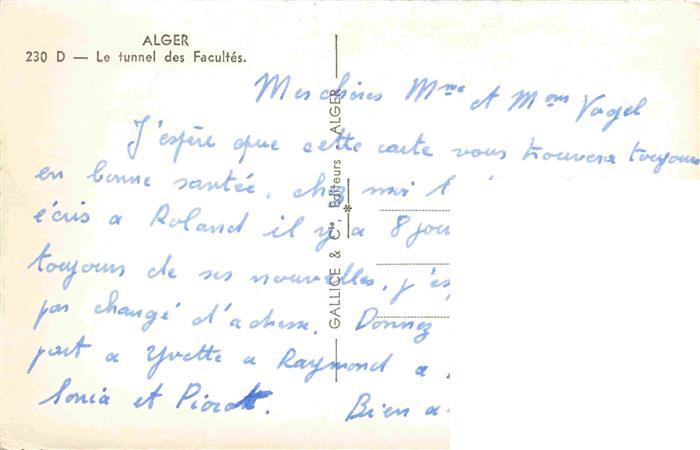 ALGER
230 D — Le tunnel des Facultés.
GALLICE & Cie, Editeurs - ALGER
Mes chères Mme et Mons Vogel
J'espère que cette carte vous trouvera toujours
en bonne santée, chez moi
écris a Roland il y a 8 jou
toujours de ses nouvelles, j'esp
pas changé d'adresse. Donnez
part a Yvette a Raymond a
Sonia et Pierrot. Bien a